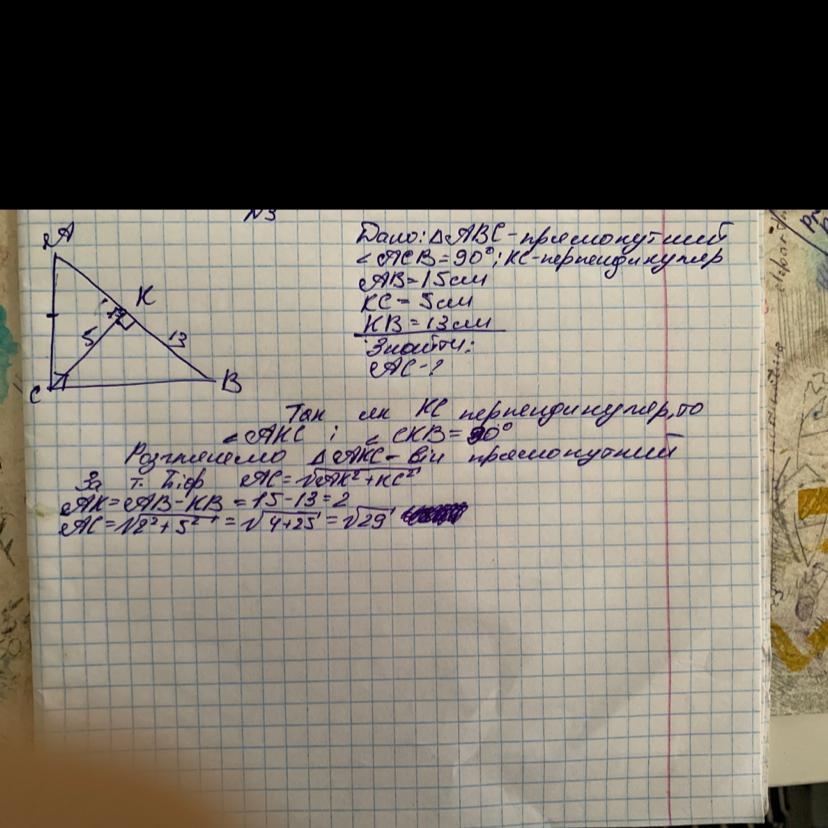 N3
A
K
5
13
C
B
Дано: ΔABC - прямокутний
∠ACB = 90°; KC - перпендикуляр
AB = 15 см
KC = 5 см
KB = 13 см
Знайти:
AC - ?
Так як KC перпендикуляр, то
∠AKC і ∠CKB = 90°
Розглянемо ΔAKC - він прямокутний
За т. Піф AC = √AK² + KC²
AK = AB - KB = 15 - 13 = 2
AC = √2² + 5² = √4+25 = √29